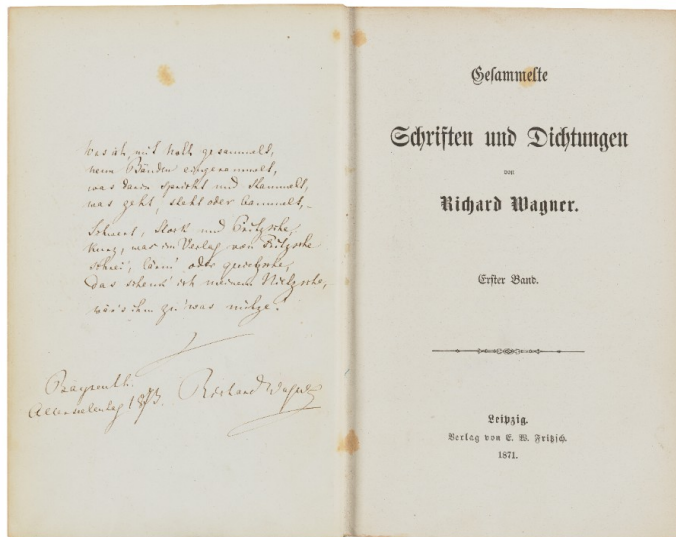 Was ich mit Noth gesammelt,
neun Bänden eingerammelt,
was darin spricht und stammelt,
was geht, steht oder bammelt, –
Schwert, Stock und Pritzsche,
kurz, was im Verlag von Fritzsche
schrei', lärm' oder quietzsche,
das schenk' ich meinem Nietzsche,
wär's ihm zu 'was nütze!
Bayreuth.
Allerseelentag 1873. Richard Wagner
Gesammelte
Schriften und Dichtungen
von
Richard Wagner.
Erster Band.
Leipzig.
Verlag von E. W. Fritzsch.
1871.